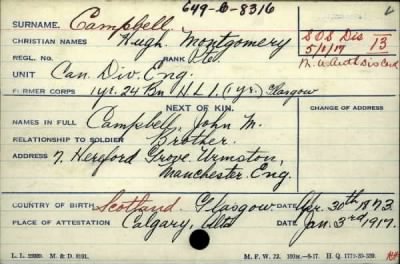 649-C-8316
SURNAME. Campbell.
CHRISTIAN NAMES Hugh Montgomery
S O S Dis 13
REGL. NO. RANK Pte.
5/1/17
UNIT Can. Div. Eng.
FORMER CORPS 1 yr. 24 Bn H L I. (1 yr.) Glasgow
NEXT OF KIN.
CHANGE OF ADDRESS
NAMES IN FULL Campbell, John M.
RELATIONSHIP TO SOLDIER Brother.
ADDRESS 7. Hereford Grove. Urmston,
Manchester. Eng.
COUNTRY OF BIRTH Scotland. Glasgow DATE Apr. 30th 1873.
PLACE OF ATTESTATION Calgary, Alta DATE Jan. 3rd 1917.
L. L. M. & D. M. F. W. 72. H. Q. 1772-39-339.